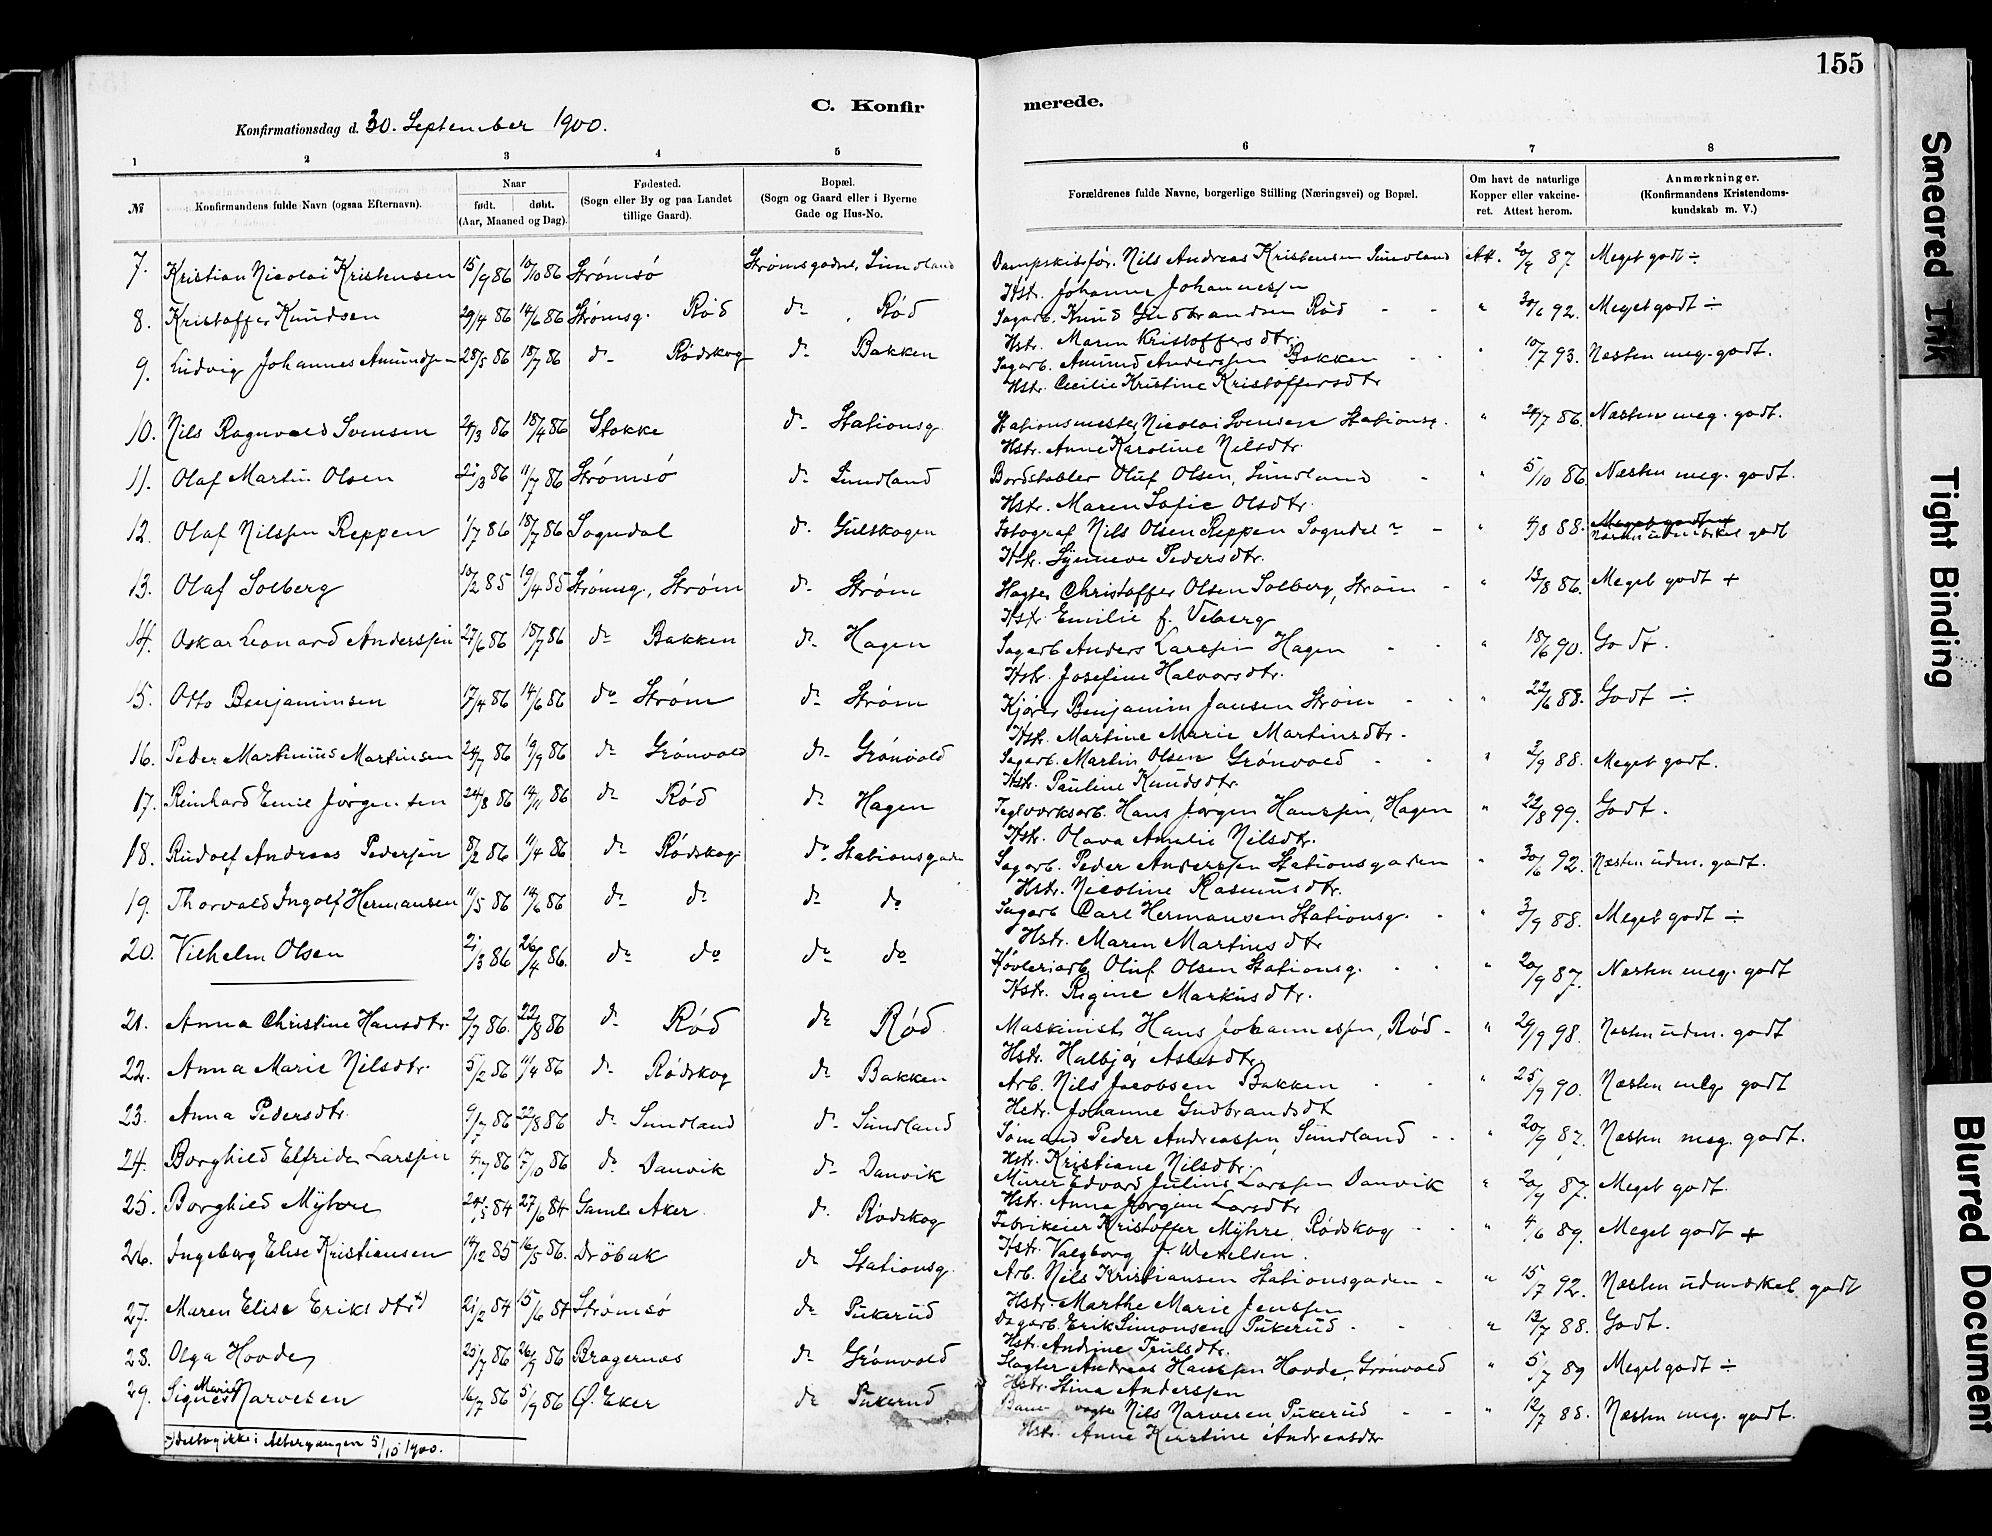 155
C. Konfirmerede.
Konfirmationsdag d. 30. September 1900.
1 2 3 4 5 6 7 8
№
Konfirmandens fulde Navn (ogsaa Efternavn).
Naar
født. døbt.
(Aar, Maaned og Dag).
Fødested.
(Sogn eller By og paa Landet
tillige Gaard).
Bopæl.
(Sogn og Gaard eller i Byerne
Gade og Hus-No.
Forældrenes fulde Navne, borgerlige Stilling (Næringsvei) og Bopæl.
Om havt de naturlige
Kopper eller vakcine-
ret. Attest herom.
Anmærkninger.
(Konfirmandens Kristendoms-
kundskab m. V.)
7. Kristian Nicolai Kristensen 15/9 86 10/10 86 Strømsø Strømsgodset, Sundland Dampskibsfør. Nils Andreas Kristensen Sundland Att. 20/9 87. Meget godt ÷
Hstr. Johanne Johannessen
8. Kristoffer Knudsen 29/4 86 14/6 86 Strømsg. Rød do. Rød Sagarb. Knud Gudbrandsen Rød " 30/6 92. Meget godt ÷
Hstr. Maren Kristoffersdtr.
9. Ludvig Johannes Amundsen 28/5 86 18/7 86 do Rødskog do Bakken Sagarb. Amund Anderssen Bakken " 10/7 93. Næsten meg. godt.
Hstr. Cecilie Kristine Kristoffersdtr
10. Nils Ragnvald Svensen 24/3 86 18/4 86 Stokke do Stationsg. Stationsmester Nicolai Svensen Stationsg. " 24/7 86. Næsten meg. godt.
Hstr. Anne Karoline Nilsdtr.
11. Olaf Martin Olsen 21/3 86 11/7 86 Strømsø do Sundland Bordstabler Oluf Olsen, Sundland " 5/10 86 Næsten meg. godt.
Hstr. Maren Sofie Olsdtr.
12. Olaf Nilssen Reppen 1/7 86 18/7 86 Sogndal do Gulskogen Fotograf Nils Olsen Reppen Sogndal " 4/8 88. Meget godt
Næsten udmærket godt
Hstr. Synneve Pedersdtr.
13. Olaf Solberg 10/2 85 19/4 85 Strømsg, Strøm do Strøm Christoffer Olsen Solberg, Strøm " 13/8 86. Meget godt +
Hstr. Emilie f. Veberg
14. Oskar Leonard Anderssen 27/6 86 18/7 86 do Bakken do Hagen Sagarb Anders Larssen Hagen " 18/6 90. Godt.
Hstr. Josefine Halvorsdtr.
15. Otto Benjaminsen 17/4 86 14/6 86 do Strøm do Strøm Kjører Benjamin Jansen Strøm " 22/6 88. Godt ÷
Hstr. Martine Marie Martinsdtr.
16. Peder Martinius Martinsen 24/7 86 19/9 86 do Grønvold do Grønvold Sagarb. Martin Olsen Grønvold " 2/9 88. Meget godt.
Hstr. Pauline Knudsdtr.
17. Reinhard Emil Jørgensen 24/8 86 14/11 86 do Rød do Hagen Teglværksarb. Hans Jørgen Hanssen, Hagen " 22/8 99. Godt.
Hstr. Olava Amalie Nilsdtr.
18. Rudolf Andreas Pedersen 8/2 86 11/4 86 do Rødskog do Stationsgaden Sagarb. Peder Anderssen Stationsgaden " 30/6 92. Næsten udm. godt.
Hstr. Nicoline Rasmusdtr.
19. Thorvald Ingolf Hermansen 11/5 86 14/6 86 do do do do Sagarb Carl Hermansen Stationsg. " 3/9 88. Meget godt ÷
Hstr. Maren Martinsdtr
20. Vilhelm Olsen 21/3 86 26/4 86. do do do do Høvleriarb. Oluf Olsen Stationsg. " 20/9 87. Næsten meg. godt
Hstr. Regine Markusdtr.
21. Anna Christine Hansdtr. 2/7 86. 22/8 86 do Rød do Rød Maskinist Hans Johannessen, Rød " 29/9 98. Næsten udm. godt
Hstr. Halbjør
22. Anna Marie Nilsdtr. 5/2 86 11/4 86 do Rødskog do Bakken Arb. Nils Jacobsen Bakken " 25/9 90. Næsten meg. godt
Hstr. Johanne Gudbrandsdt
23. Anna Pedersdtr. 9/7 86 22/8 86 do Sundland do Sundland Sømand Peder Andreassen, Sundland " 20/9 87. Næsten meg. godt.
Hstr. Kristiane Nilsdtr.
24. Borghild Elfrida Larssen 4/7 86 17/10 86 do Danvik do Danvik Murer Edvard Julius Larssen Danvik " 20/9 87. Meget godt.
Hstr. Anna Jørgine Larsdtr
25. Borghild Myhre 24/5 84 27/6 84 Gamle Aker do Rødskog Fabrikeier Kristoffer Myhre, Rødskog " 4/6 89. Meget godt +
Hstr. Valgborg f. Wexelsen.
26. Ingeborg Elise Kristiansen 14/12 85 16/5 86. Drøbak do Stationsg. Arb. Nils Kristiansen Stationsgaden " 15/7 92. Næsten udmærket godt
Hstr. Marthe Marie Jenssen
27. Maren Elise Eriksdtr x) 21/2 84 15/6 84 Strømsø do Pukerud Dagarb. Erik Simonsen, Pukerud " 12/7 88. Godt.
Hstr. Andrine Trulsdtr.
28. Olga Hovde 25/7 86 26/9 86 Bragernæs do Grønvold Slagter Andreas Hanssen Hovde, Grønvold " 5/7 89 Meget godt ÷
Hstr. Stina Anderssen
29. Signe Marie Narvesen 16/7 86 5/9 86 Ø. Eker do Pukerud Banevogter Nils Narvesen, Pukerud " 12/7 88. Næsten meg. godt.
Hstr. Anne Kirstine Andreasdtr
x) deltog ikke i Altergangen 5/10 1900.
Smeared Ink
Tight Binding
Blurred Document